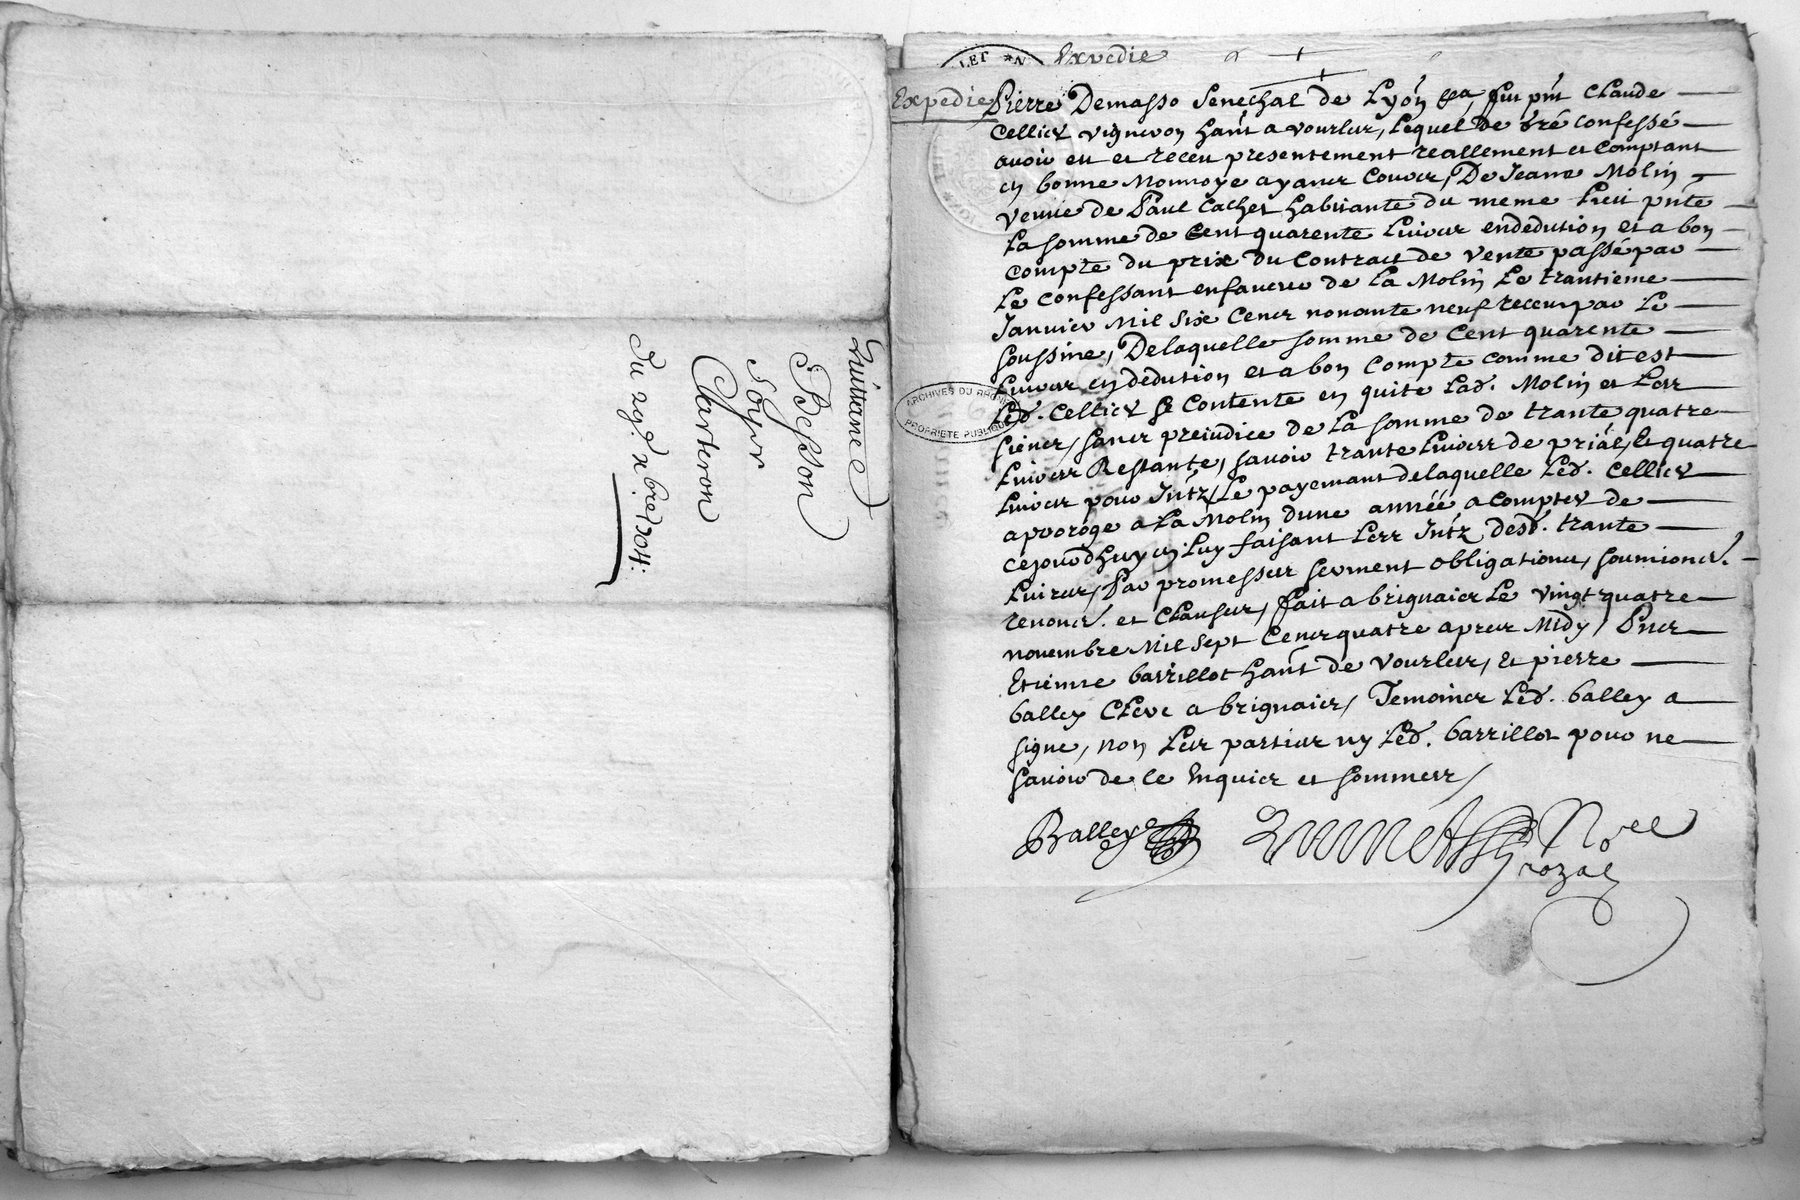 Quittance
Besson
Sour
Charteron
Du 29e. xbre 1704:
Expedie
Expedie
Pierre Demasso Senechal de Lyon sça, fut pnt Claude
Cellier vigneron hant a vourles, Lequel de gré confessé
avoir eu et receu presentement reallement et Comptant
en bonne Monnoye ayant Cours, De Jeane Molin
veuve de Paul Cachet habitante du meme Lieu pnte
La somme de Cent quarente Livres endedution et a bon
compte du prix du Contract de vente passé par
Le Confessant enfaveur de La Molin Le trantieme
Janvier Mil Six Cents nonante neuf receu par Le
soussine, Delaquelle somme de Cent quarente
Livres en dedution et a bon Compte comme dit est
Led. Cellier se Contente en quite Lad. Molin et Les
siens, sans prejudice de La somme de trante quatre
Livres Restante, savoir trante Livres de prial, Et quatre
Livres pour Intz, Le payemant delaquelle Led. Cellier
a proroge a La Molin dune année a compter de
cejourdhuy en Luy faisant Les Intz desd. trante
Livres, Par promesses serment obligations, soumions.
renons. et Clauses, fait a brignais Le vingt quatre
novembre Mil Sept Cents quatre apres Midy, Pncs
Etienne barrillot hant de vourles, Et pierre
balley Clerc a brignais, Temoins Led. balley a
signe, non Les parties ny Led. barrillot pour ne
savoir de ce Enquis et sommes,
Balley
Nore
Rozal
ARCHIVES DU RHONE
PROPRIETE PUBLIQUE